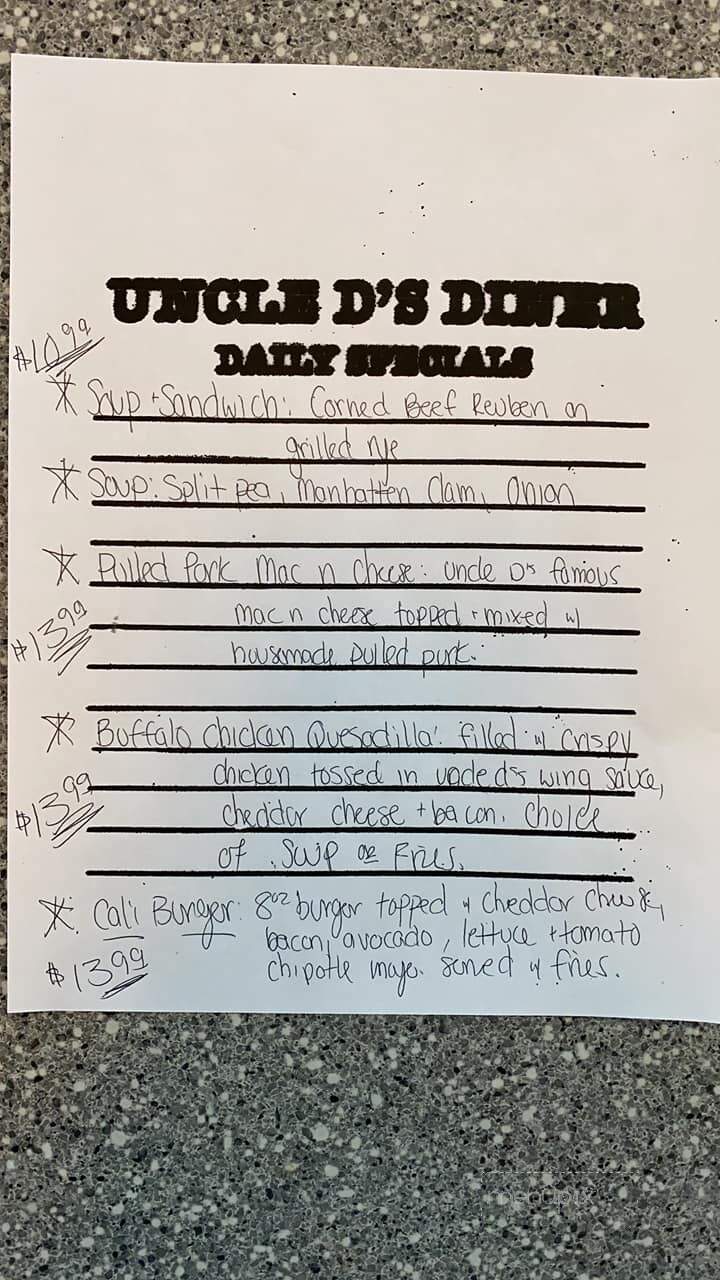 UNCLE D'S DINER
DAILY SPECIALS
$10.99
* Soup + Sandwich: Corned Beef Reuben on
grilled rye
* Soup: Split pea, Manhatten Clam, Onion
* Pulled Pork Mac n cheese: uncle D's famous
mac n cheese topped + mixed w/
$13.99
housemade pulled pork.
* Buffalo Chicken Quesadilla: filled w/ crispy
chicken tossed in uncle d's wing sauce,
$13.99
cheddar cheese + bacon. Choice
of Soup or Fries.
* Cali Burger: 8oz burger topped w cheddar cheese,
bacon, avocado, lettuce + tomato
$13.99
chipotle mayo. Served w fries.
menupix